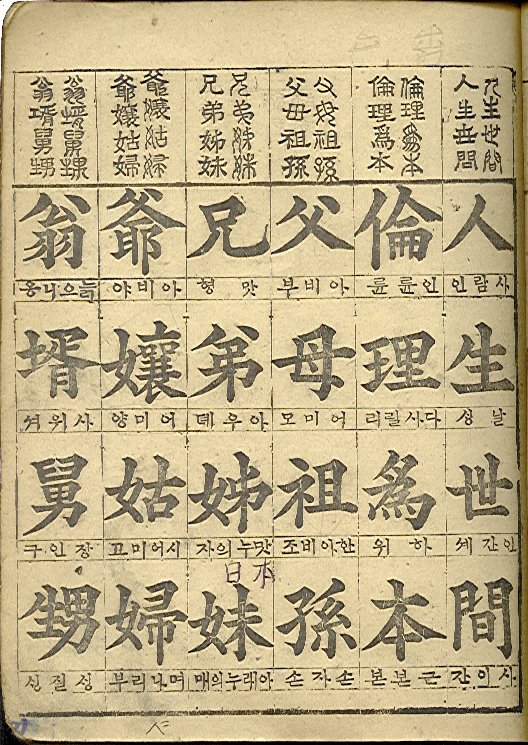 人生世間
人生世間
倫理爲本
倫理爲本
父母祖孫
父母祖孫
兄弟姊妹
兄弟姊妹
爺孃姑婦
爺孃姑婦
翁壻舅甥
翁壻舅甥
人
사람인
生
날싱
世
인간셰
間
사이간
倫
인륜륜
理
다사릴리
爲
하위
本
근본본
父
아비부
母
어미모
祖
한아비조
孫
손자손
兄
맛형
弟
아우뎨
姊
맛누의자
妹
아래누의매
日本
爺
아비야
孃
어미양
姑
시어미고
婦
며나리부
翁
늙으니옹
壻
사위셔
舅
장인구
甥
싱질싱